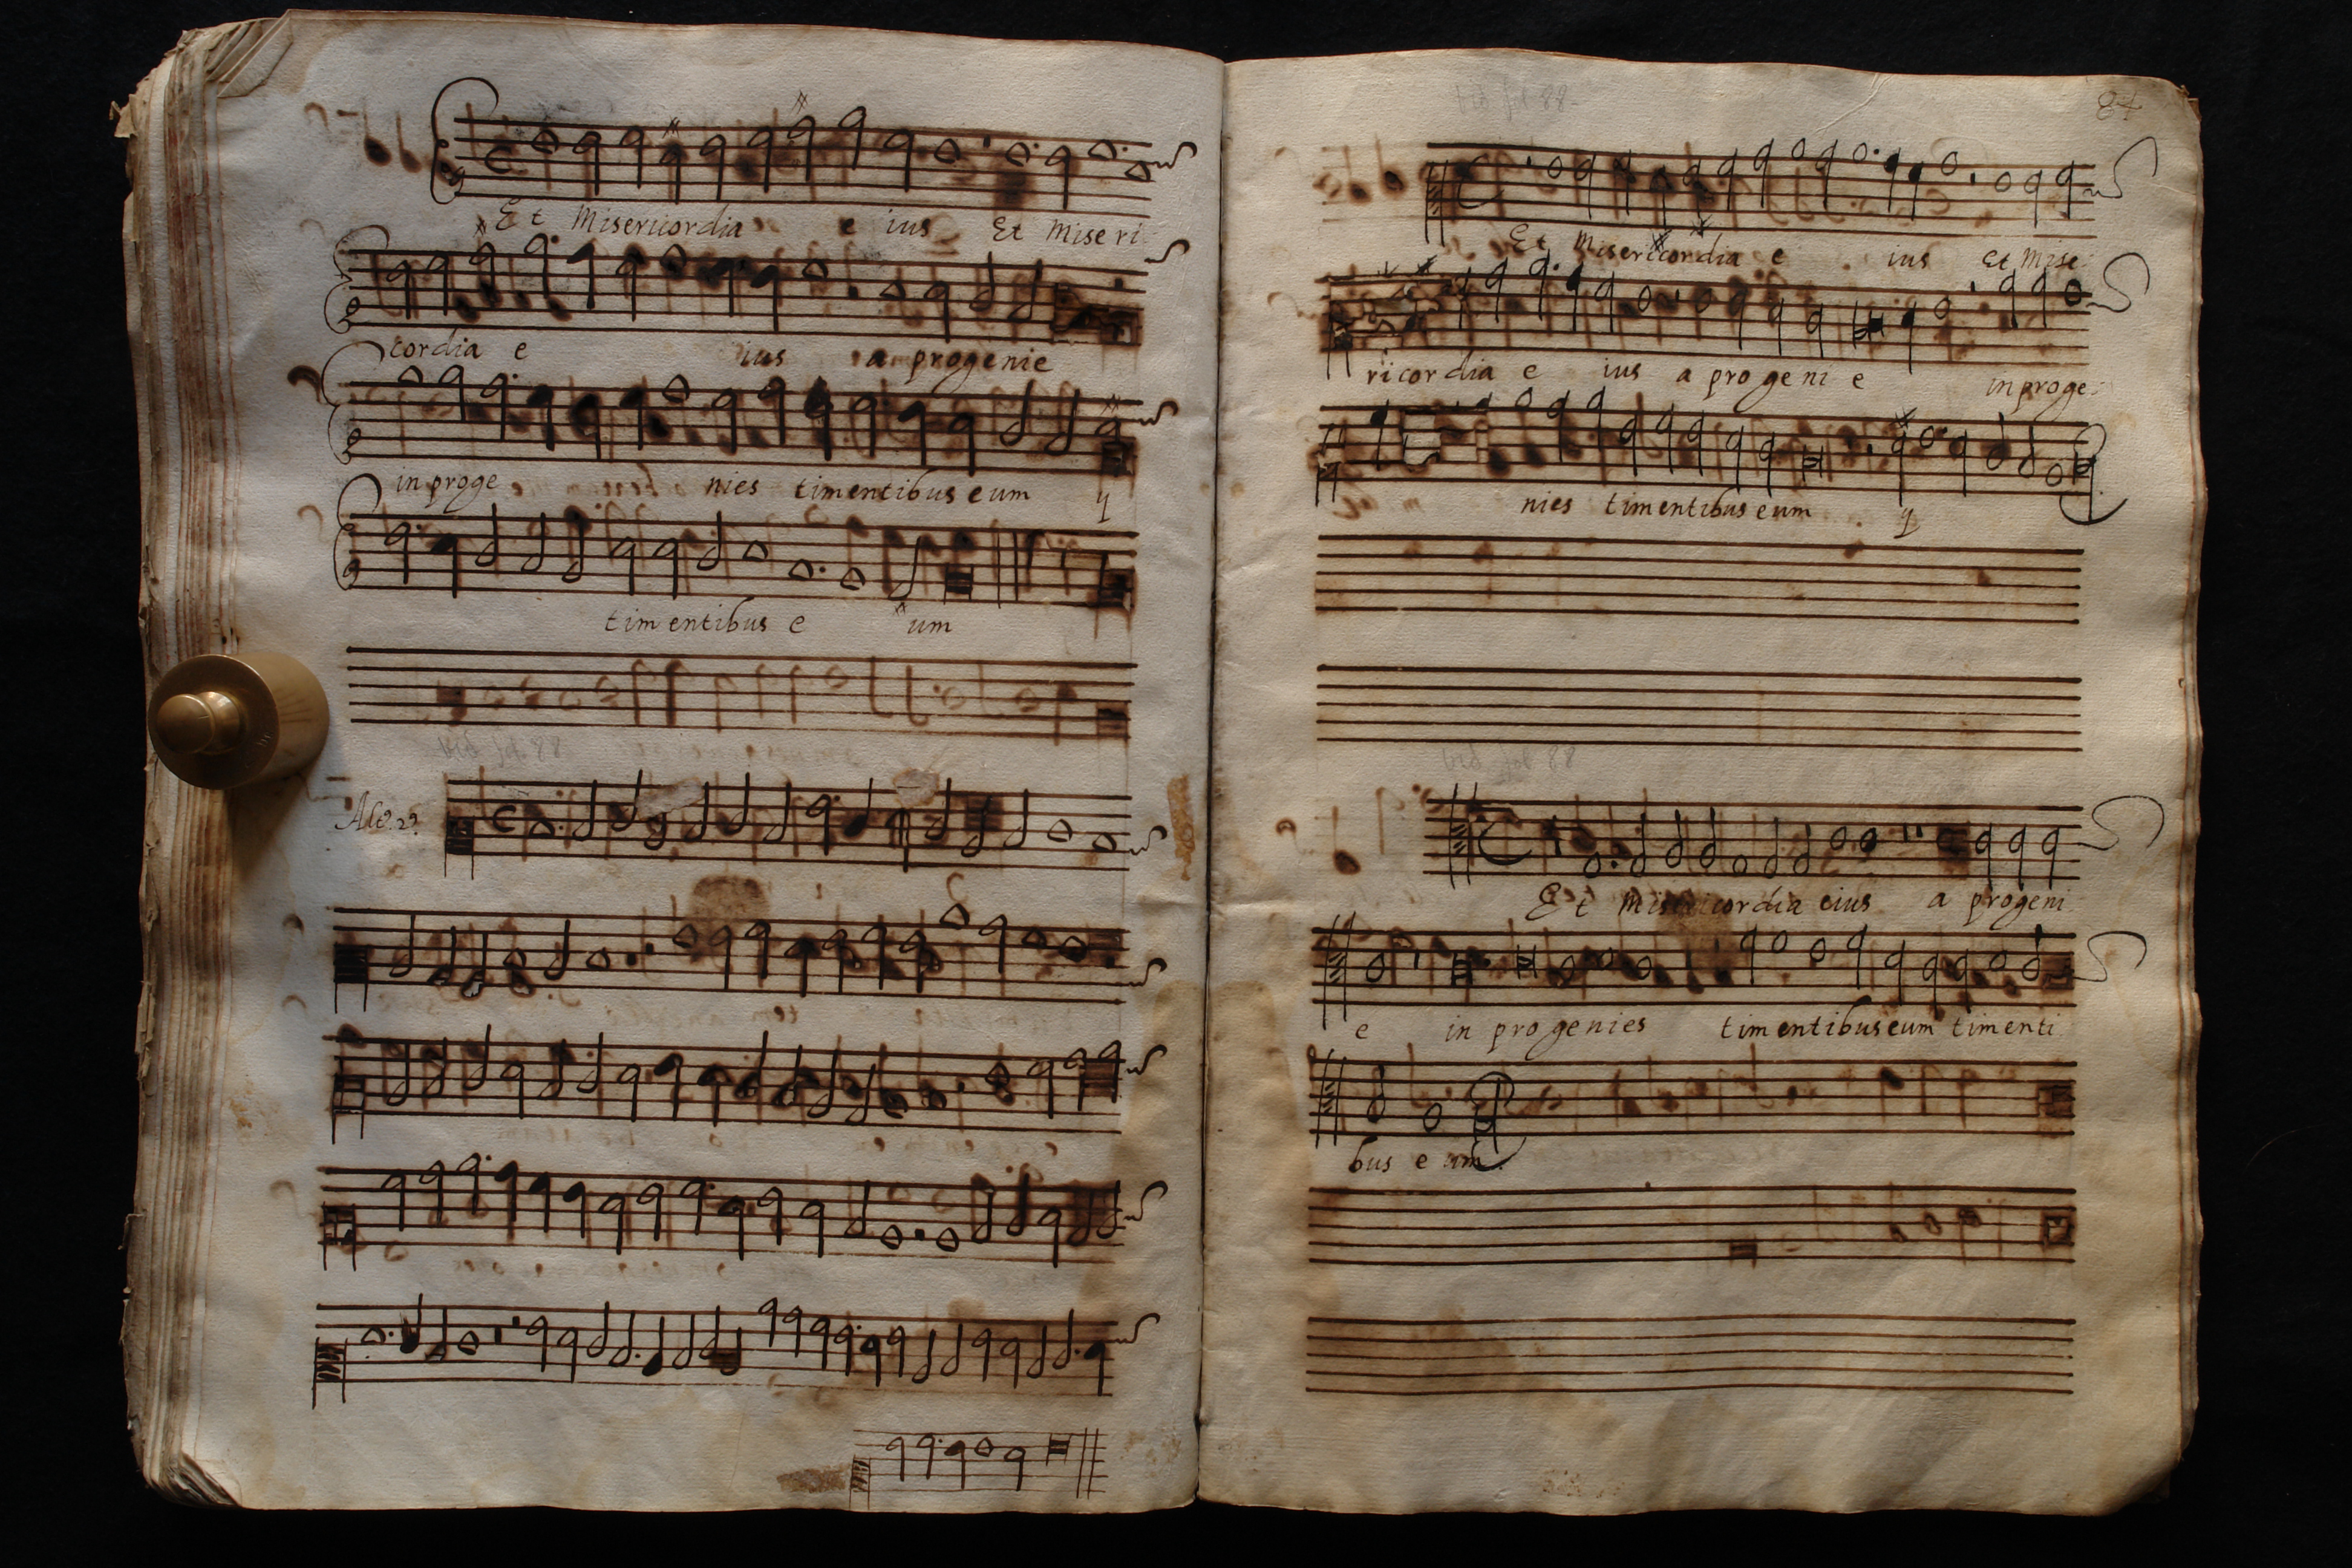 Et Misericordia e ius Et Miseri
cordia e ius a progenie
in proge nies timentibus eum
timentibus e um
vid fol. 88
vid fol 88
84
Et Misericordia e ius Et Mise
ricordia e ius a progeni e in proge
nies timentibus eum
vid fol 88
Et Misericordia eius a progeni
e in progenies timentibus eum timenti
bus e um